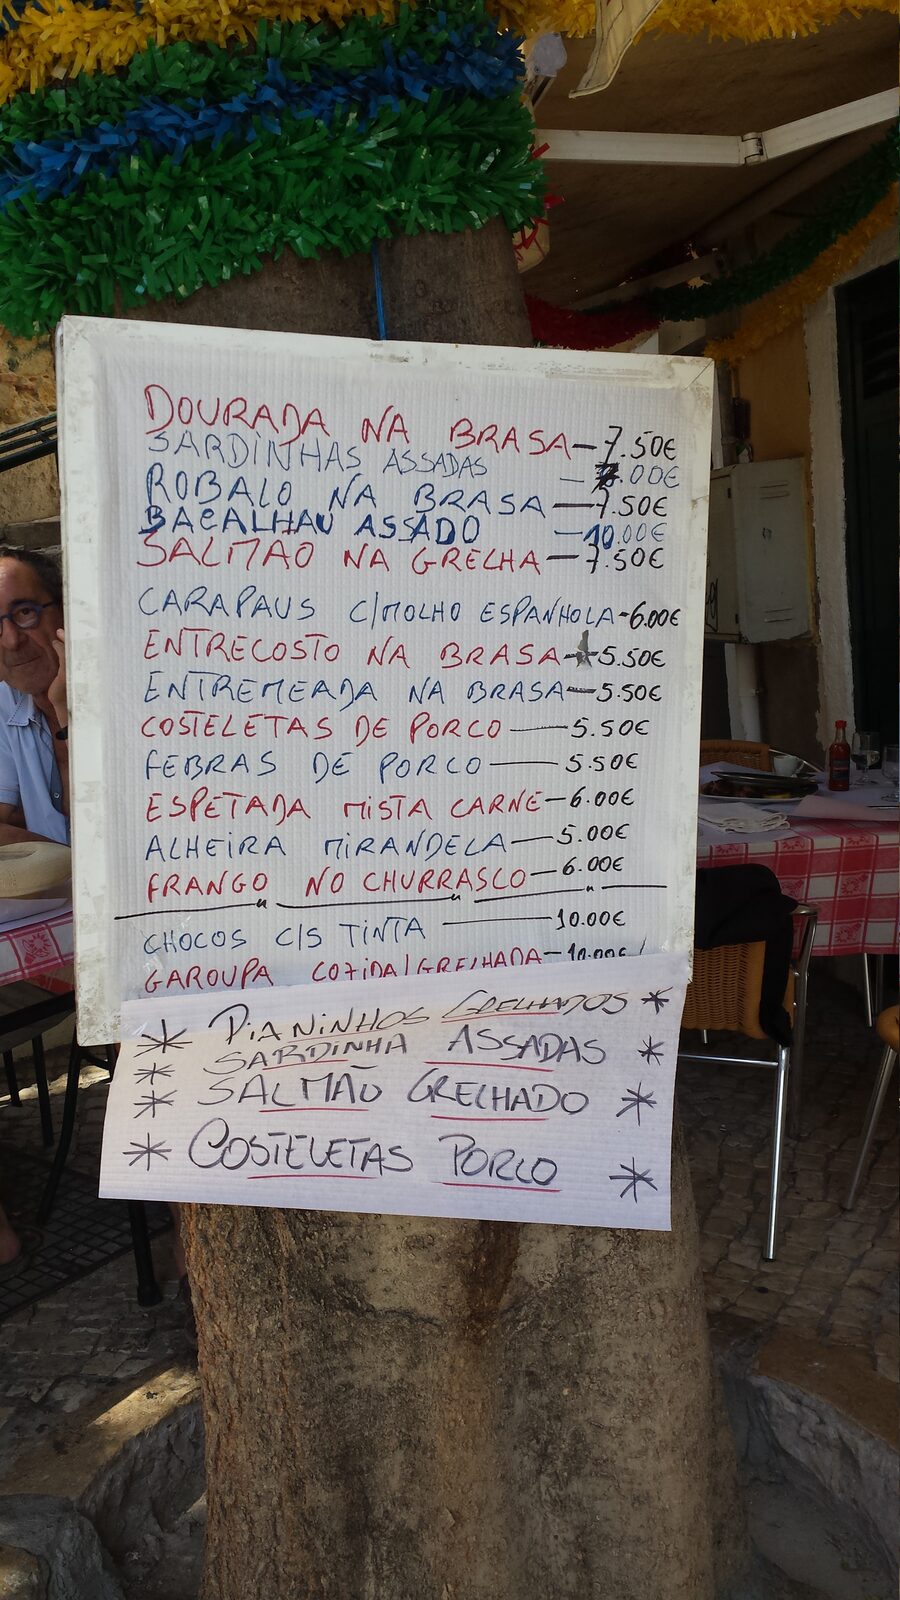 DOURADA NA BRASA—7.50€
SARDINHAS ASSADAS — .00€
ROBALO NA BRASA—7.50€
BACALHAU ASSADO —10.00€
SALMAO NA GRELHA—7.50€
CARAPAUS C/MOLHO ESPANHOLA-6.00€
ENTRECOSTO NA BRASA—5.50€
ENTREMEADA NA BRASA—5.50€
COSTELETAS DE PORCO—5.50€
FEBRAS DE PORCO—5.50€
ESPETADA MISTA CARNE—6.00€
ALHEIRA MIRANDELA—5.00€
FRANGO NO CHURRASCO—6.00€
CHOCOS C/S TINTA —10.00€
GAROUPA COZIDA/GRELHADA—10.00€
* PIANINHOS GRELHADOS *
* SARDINHA ASSADAS *
* SALMÃO GRELHADO *
* COSTELETAS PORCO *